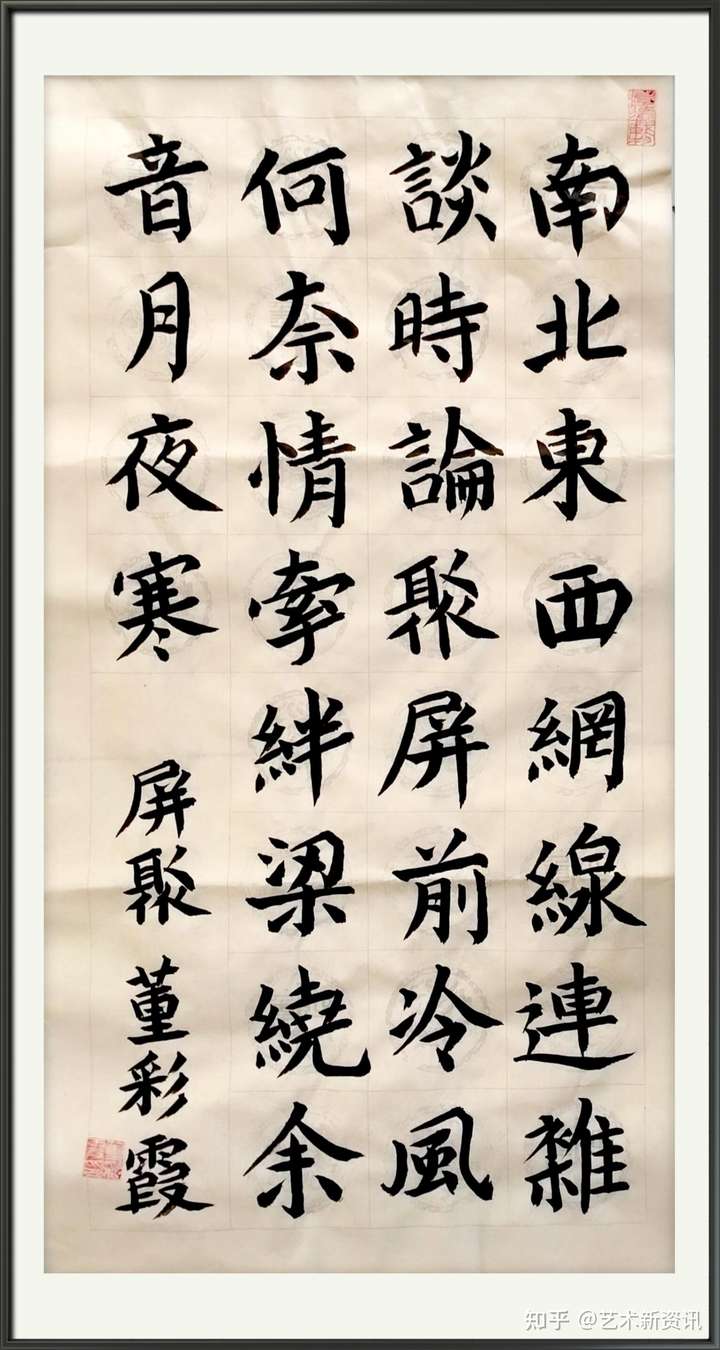 南北東西網線連雜
談時論聚屏前冷風
何奈情牽絆梁繞余
音月夜寒
屏聚 董彩霞
知乎 @艺术新资讯